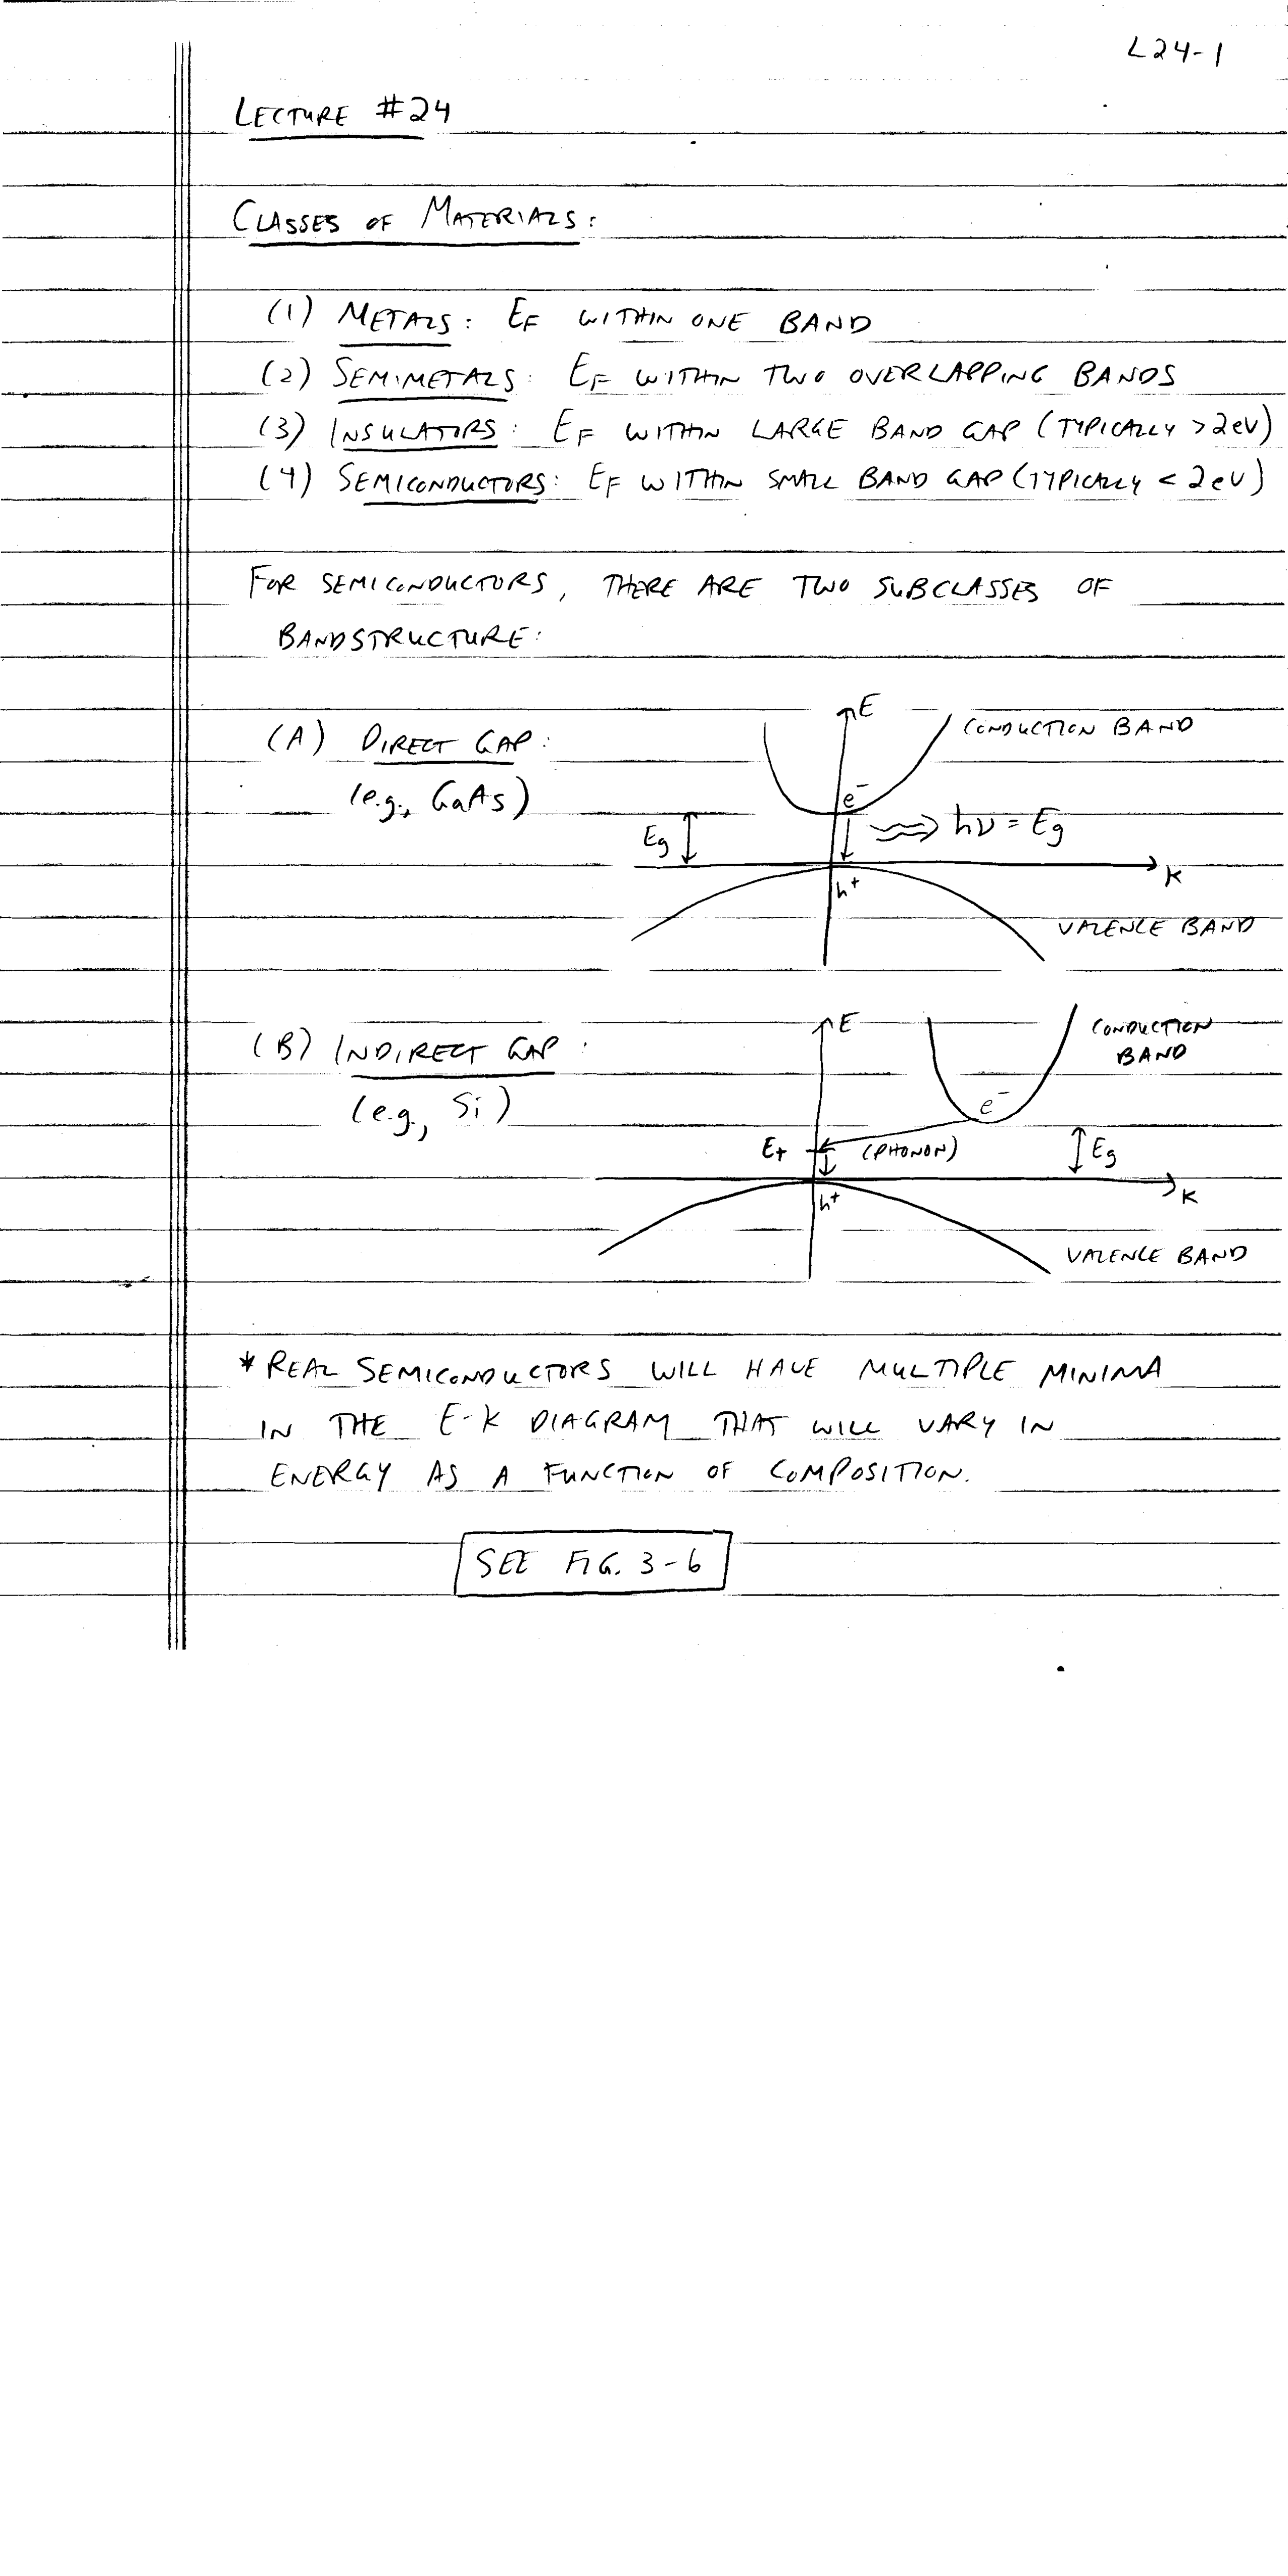 L24-1
LECTURE #24
CLASSES OF MATERIALS:
(1) METALS: EF WITHIN ONE BAND
(2) SEMIMETALS: EF WITHIN TWO OVERLAPPING BANDS
(3) INSULATORS: EF WITHIN LARGE BAND GAP (TYPICALLY >2eV)
(4) SEMICONDUCTORS: EF WITHIN SMALL BAND GAP (TYPICALLY < 2eV)
FOR SEMICONDUCTORS, THERE ARE TWO SUBCLASSES OF
BANDSTRUCTURE:
(A) DIRECT GAP:
(e.g., GaAs)
E
CONDUCTION BAND
e-
Eg
hν = Eg
k
h+
VALENCE BAND
(B) INDIRECT GAP:
(e.g., Si)
E
CONDUCTION
BAND
e-
Et
(PHONON)
Eg
k
h+
VALENCE BAND
* REAL SEMICONDUCTORS WILL HAVE MULTIPLE MINIMA
IN THE E-k DIAGRAM THAT WILL VARY IN
ENERGY AS A FUNCTION OF COMPOSITION.
SEE FIG. 3-6